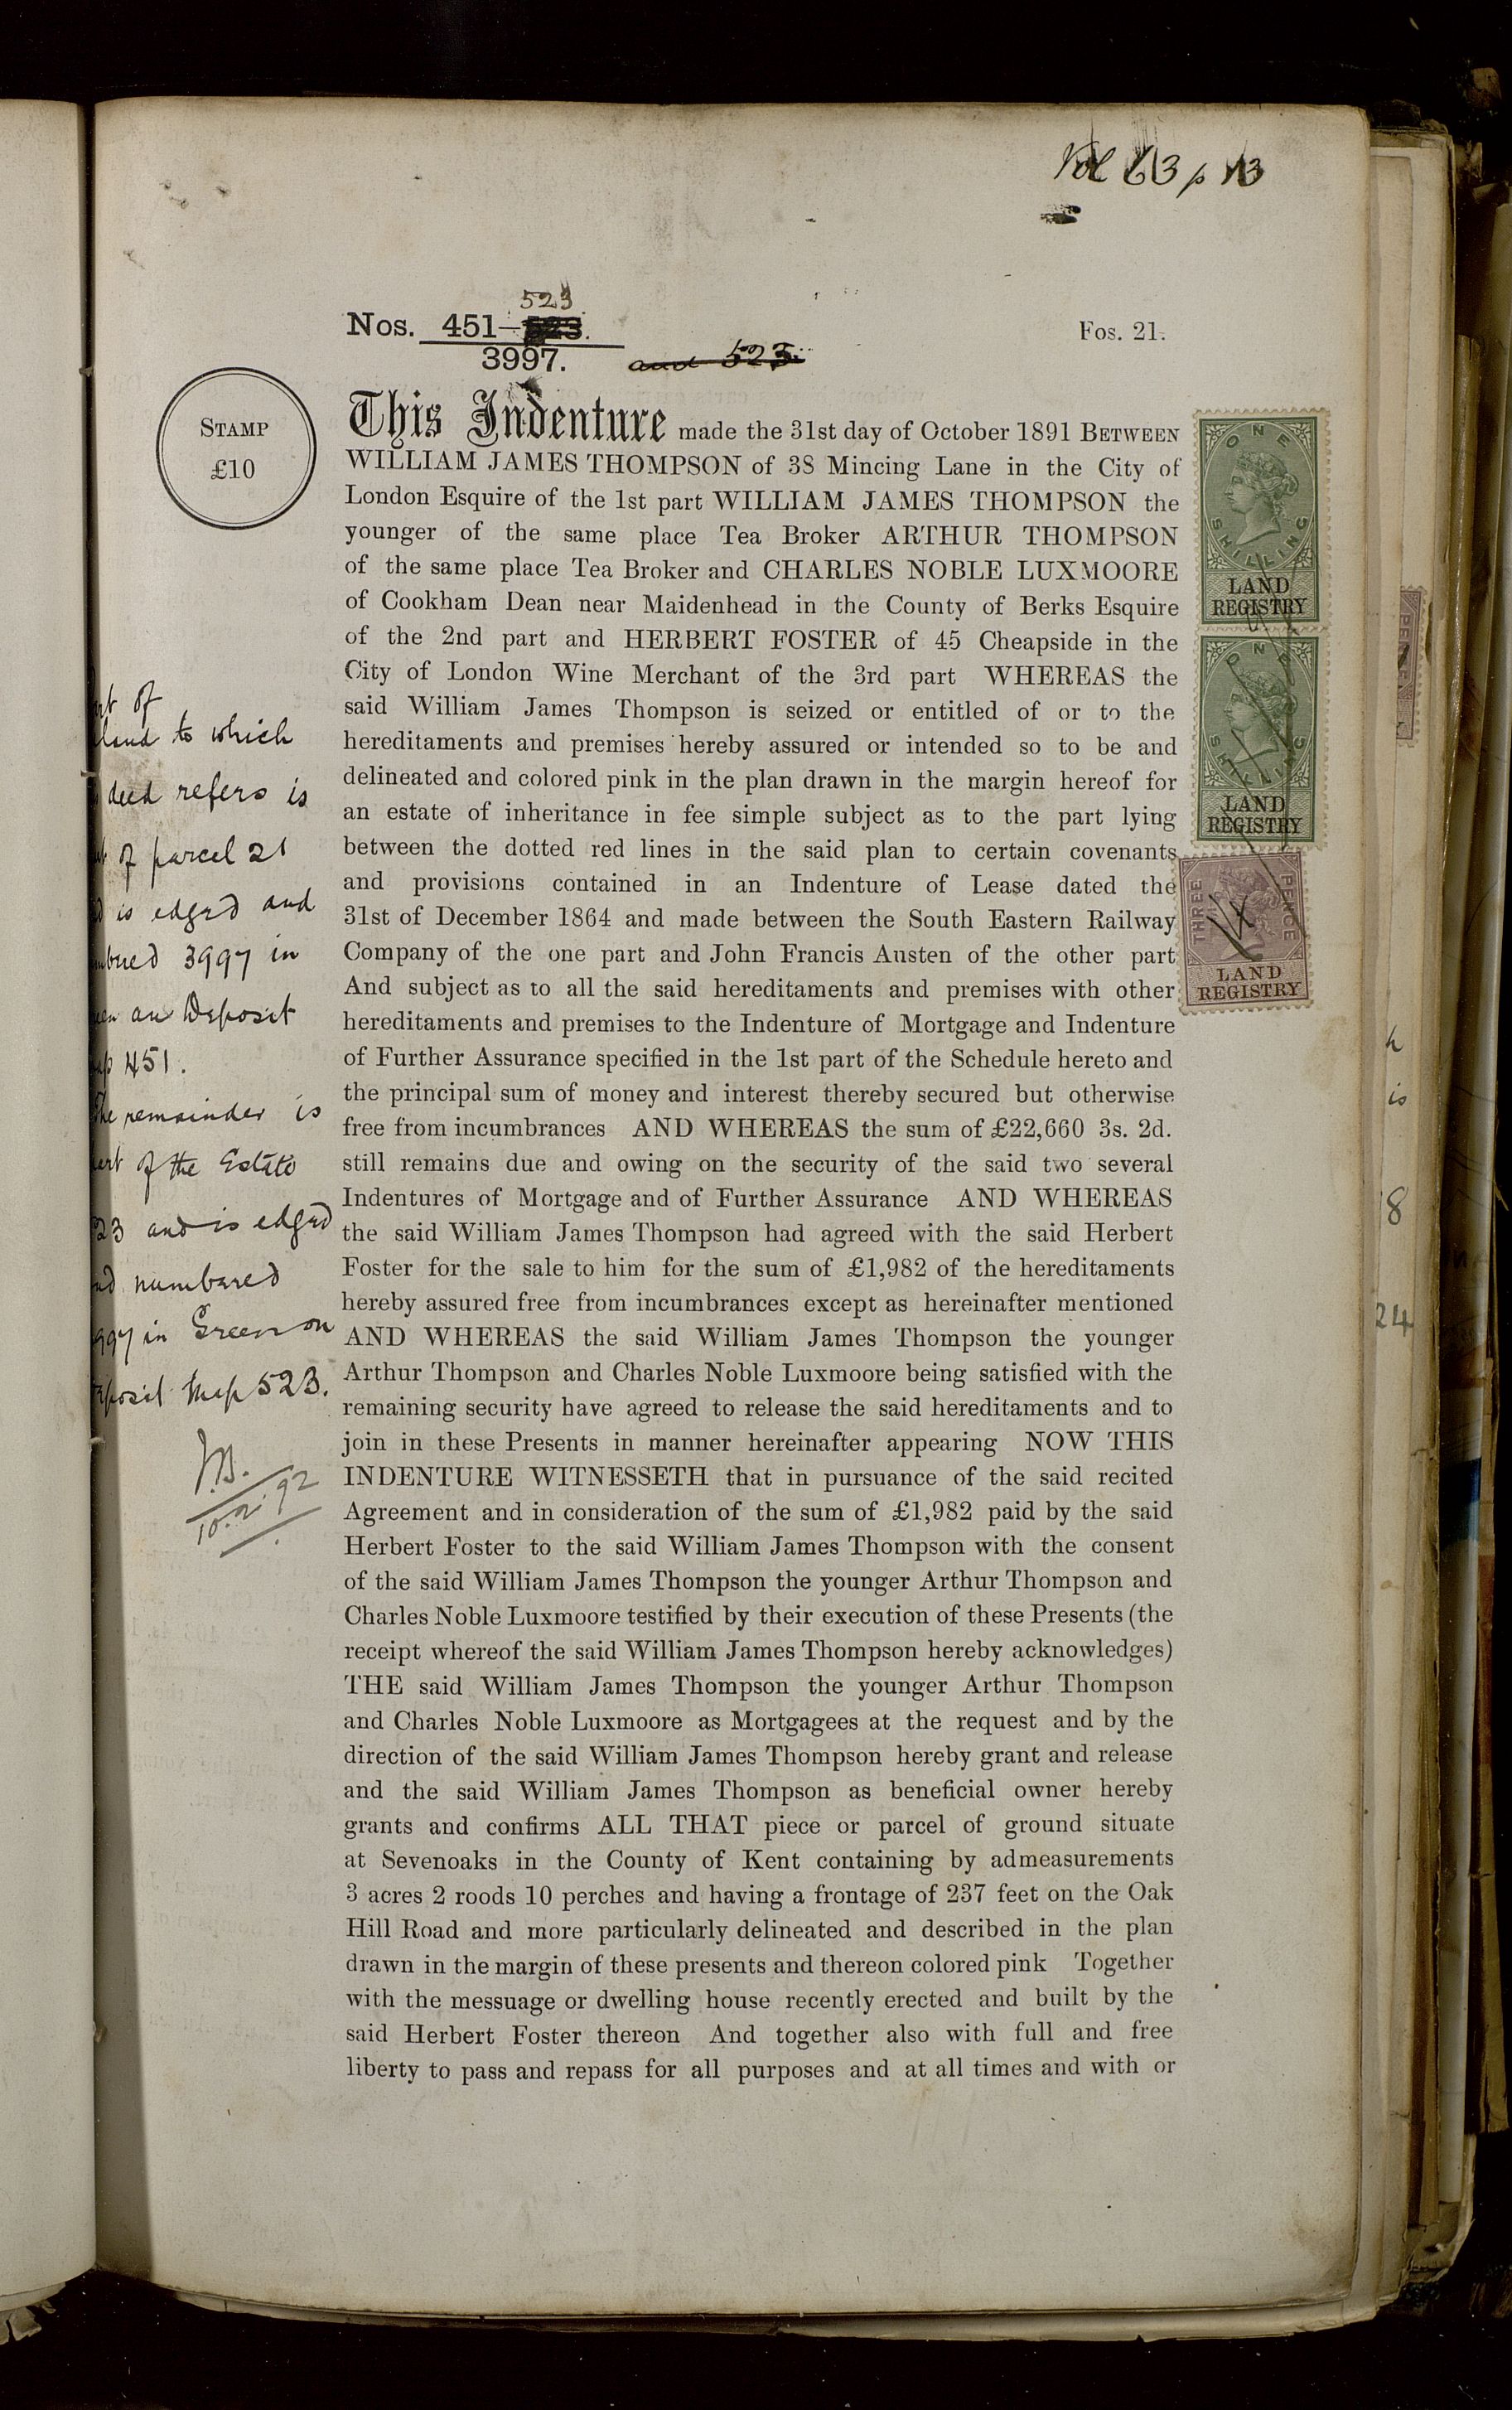 Vol 63 p 13
523
Nos. 451–523.
3997.
and 523.
Fos. 21.
STAMP
£10
This Indenture made the 31st day of October 1891 BETWEEN
WILLIAM JAMES THOMPSON of 38 Mincing Lane in the City of
London Esquire of the 1st part WILLIAM JAMES THOMPSON the
younger of the same place Tea Broker ARTHUR THOMPSON
of the same place Tea Broker and CHARLES NOBLE LUXMOORE
of Cookham Dean near Maidenhead in the County of Berks Esquire
of the 2nd part and HERBERT FOSTER of 45 Cheapside in the
City of London Wine Merchant of the 3rd part WHEREAS the
said William James Thompson is seized or entitled of or to the
hereditaments and premises hereby assured or intended so to be and
delineated and colored pink in the plan drawn in the margin hereof for
an estate of inheritance in fee simple subject as to the part lying
between the dotted red lines in the said plan to certain covenants
and provisions contained in an Indenture of Lease dated the
31st of December 1864 and made between the South Eastern Railway
Company of the one part and John Francis Austen of the other part
And subject as to all the said hereditaments and premises with other
hereditaments and premises to the Indenture of Mortgage and Indenture
of Further Assurance specified in the 1st part of the Schedule hereto and
the principal sum of money and interest thereby secured but otherwise
free from incumbrances AND WHEREAS the sum of £22,660 3s. 2d.
still remains due and owing on the security of the said two several
Indentures of Mortgage and of Further Assurance AND WHEREAS
the said William James Thompson had agreed with the said Herbert
Foster for the sale to him for the sum of £1,982 of the hereditaments
hereby assured free from incumbrances except as hereinafter mentioned
AND WHEREAS the said William James Thompson the younger
Arthur Thompson and Charles Noble Luxmoore being satisfied with the
remaining security have agreed to release the said hereditaments and to
join in these Presents in manner hereinafter appearing NOW THIS
INDENTURE WITNESSETH that in pursuance of the said recited
Agreement and in consideration of the sum of £1,982 paid by the said
Herbert Foster to the said William James Thompson with the consent
of the said William James Thompson the younger Arthur Thompson and
Charles Noble Luxmoore testified by their execution of these Presents (the
receipt whereof the said William James Thompson hereby acknowledges)
THE said William James Thompson the younger Arthur Thompson
and Charles Noble Luxmoore as Mortgagees at the request and by the
direction of the said William James Thompson hereby grant and release
and the said William James Thompson as beneficial owner hereby
grants and confirms ALL THAT piece or parcel of ground situate
at Sevenoaks in the County of Kent containing by admeasurements
3 acres 2 roods 10 perches and having a frontage of 237 feet on the Oak
Hill Road and more particularly delineated and described in the plan
drawn in the margin of these presents and thereon colored pink Together
with the messuage or dwelling house recently erected and built by the
said Herbert Foster thereon And together also with full and free
liberty to pass and repass for all purposes and at all times and with or
of
land to which
deed refers is
of parcel 21
is edged and
3997 in
on Deposit
451.
remainder is
of the Estate
and is edged
numbered
in Green on
Map 523.
J.B.
10.2.92
ONE
SHILLING
LAND
REGISTRY
ONE
SHILLING
LAND
REGISTRY
THREE
PENCE
LAND
REGISTRY
is
8
24